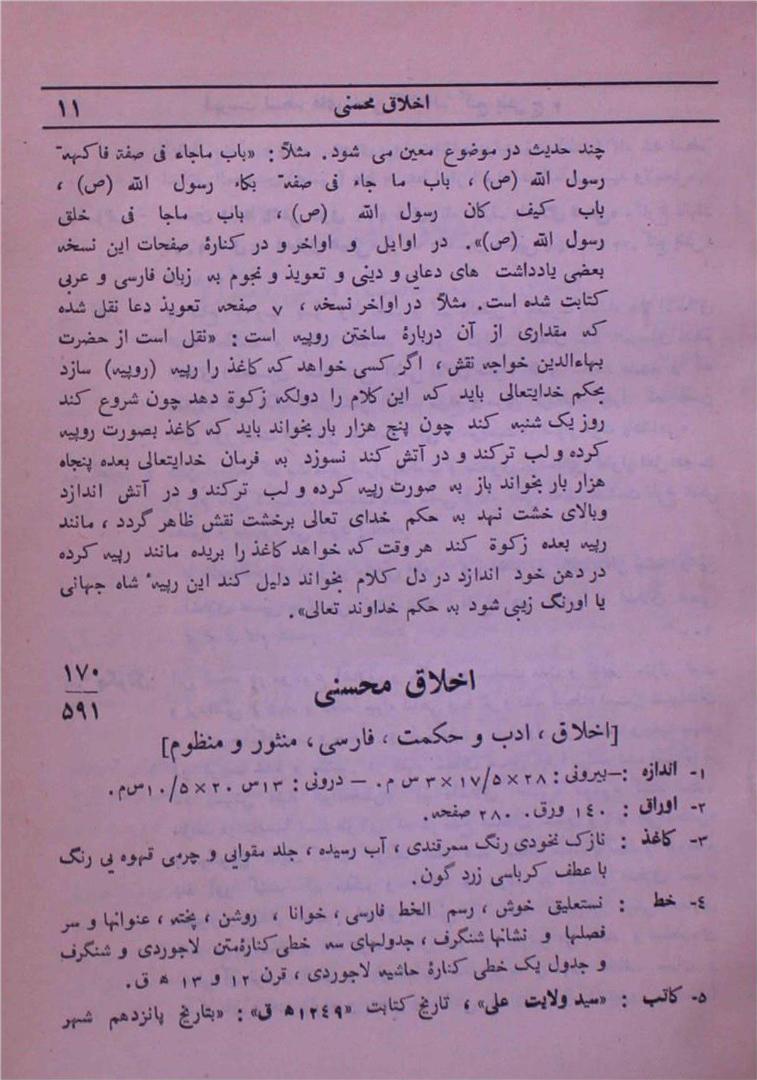 اخلاق محسنی ۱۱
چند حدیث در موضوع معین می شود. مثلاً : «باب ماجاء فی صفة فاکهة
رسول الله (ص) ، باب ما جاء فی صفة بکاء رسول الله (ص) ،
باب کیف کان رسول الله (ص) ، باب ماجا فی خلق
رسول الله (ص)». در اوایل و اواخر و در کنارهٔ صفحات این نسخه
بعضی یادداشت های دعایی و دینی و تعویذ و نجوم به زبان فارسی و عربی
کتابت شده است. مثلاً در اواخر نسخه ، ۷ صفحه تعویذ دعا نقل شده
که مقداری از آن دربارهٔ ساختن روپیه است : «نقل است از حضرت
بهاءالدین خواجه نقش ، اگر کسی خواهد که کاغذ را رپیه (روپیه) سازد
بحکم خدایتعالی باید که این کلام را دولکه زکوة دهد چون شروع کند
روز یک شنبه کند چون پنج هزار بار بخواند باید که کاغذ بصورت روپیه
کرده و لب ترکند و در آتش کند نسوزد به فرمان خدایتعالی بعده پنجاه
هزار بار بخواند باز به صورت رپیه کرده و لب ترکند و در آتش اندازد
وبالای خشت نهد به حکم خدای تعالی برخشت نقش ظاهر گردد ، مانند
رپیه بعده زکوة کند هر وقت که خواهد کاغذ را بریده مانند رپیه کرده
در دهن خود اندازد در دل کلام بخواند دلیل کند این رپیهٔ شاه جهانی
یا اورنگ زیبی شود به حکم خداوند تعالی».
اخلاق محسنی ۱۷۰
۵۹۱
[اخلاق ، ادب و حکمت ، فارسی ، منثور و منظوم]
۱- اندازه :–بیرونی : ۲۸×۱۷/۵×۳ س م. – درونی : ۱۳س ۲۰×۱۰/۵س م.
۲- اوراق : ۱۴۰ ورق. ۲۸۰ صفحه.
۳- کاغذ : نازک نخودی رنگ سمرقندی ، آب رسیده ، جلد مقوایی و چرمی قهوه یی رنگ
با عطف کرباسی زرد گون.
۴- خط : نستعلیق خوش ، رسم الخط فارسی ، خوانا ، روشن ، پخته ، عنوانها و سر
فصلها و نشانها شنگرف ، جدولهای سه خطی کنارهٔ متن لاجوردی و شنگرف
و جدول یک خطی کنارهٔ حاشیه لاجوردی ، قرن ۱۲ و ۱۳ ه ق.
۵- کاتب : «سید ولایت علی» ، تاریخ کتابت «۱۲۴۹ه ق» : «بتاریخ پانزدهم شهر